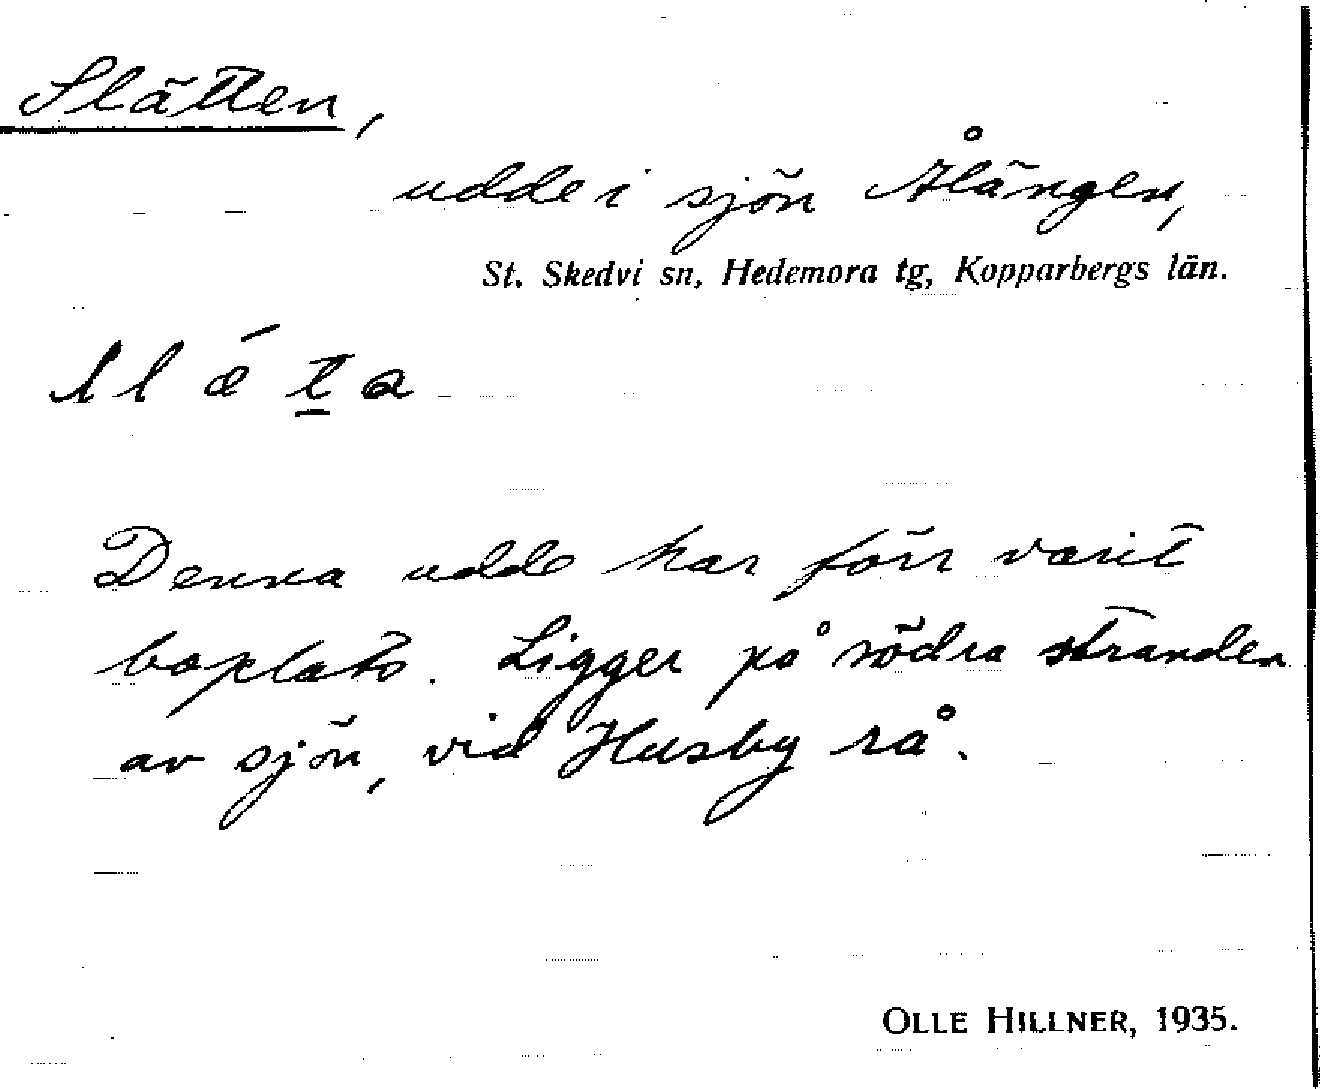 Slätten,
udde i sjön Ålängen,
St. Skedvi sn, Hedemora tg, Kopparbergs län.
Denna udde har förr varit
boplats. Ligger på södra stranden
av sjön, vid Husby rå.
OLLE HILLNER, 1935.